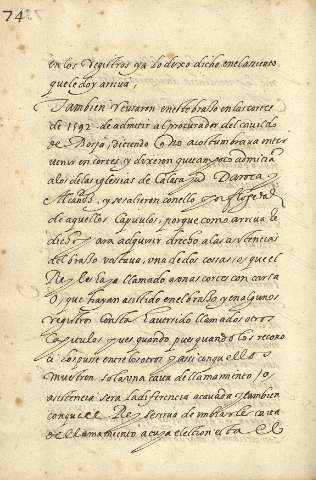 74
en los registros, ya lo dexo dicho en el asiento
que le doy arriva,
Tambien reusaron en este brasso en las cortes
de 1592 de admitir al procurador del cavildo
de Borja, diciendo no acostumbrava inter
venir en cortes, y dixeron que tampoco admitia
a los de las iglesias de Calatayud Daroca y
Alcañiz, y se salieron con ello
de aquellos Capitulos, porque como arriva he
dicho para adquirir drecho a las asistencias
del brasso bastava, una de dos cosas, o que el
Rey les haya llamado a unas cortes con carta
o, que hayan asistido en el brasso, y en algunos
registros consta haverlos llamado, y otros
Capitulos, pues quando los recono
ci los puse entre los otros, y assi con que ellos
muestren sola una carta de llamamiento, o
asistencia sera la diferencia acavada, y tambien
con que el Rey se sirva de imbiarles carta
de llamamiento a cuya election esta el